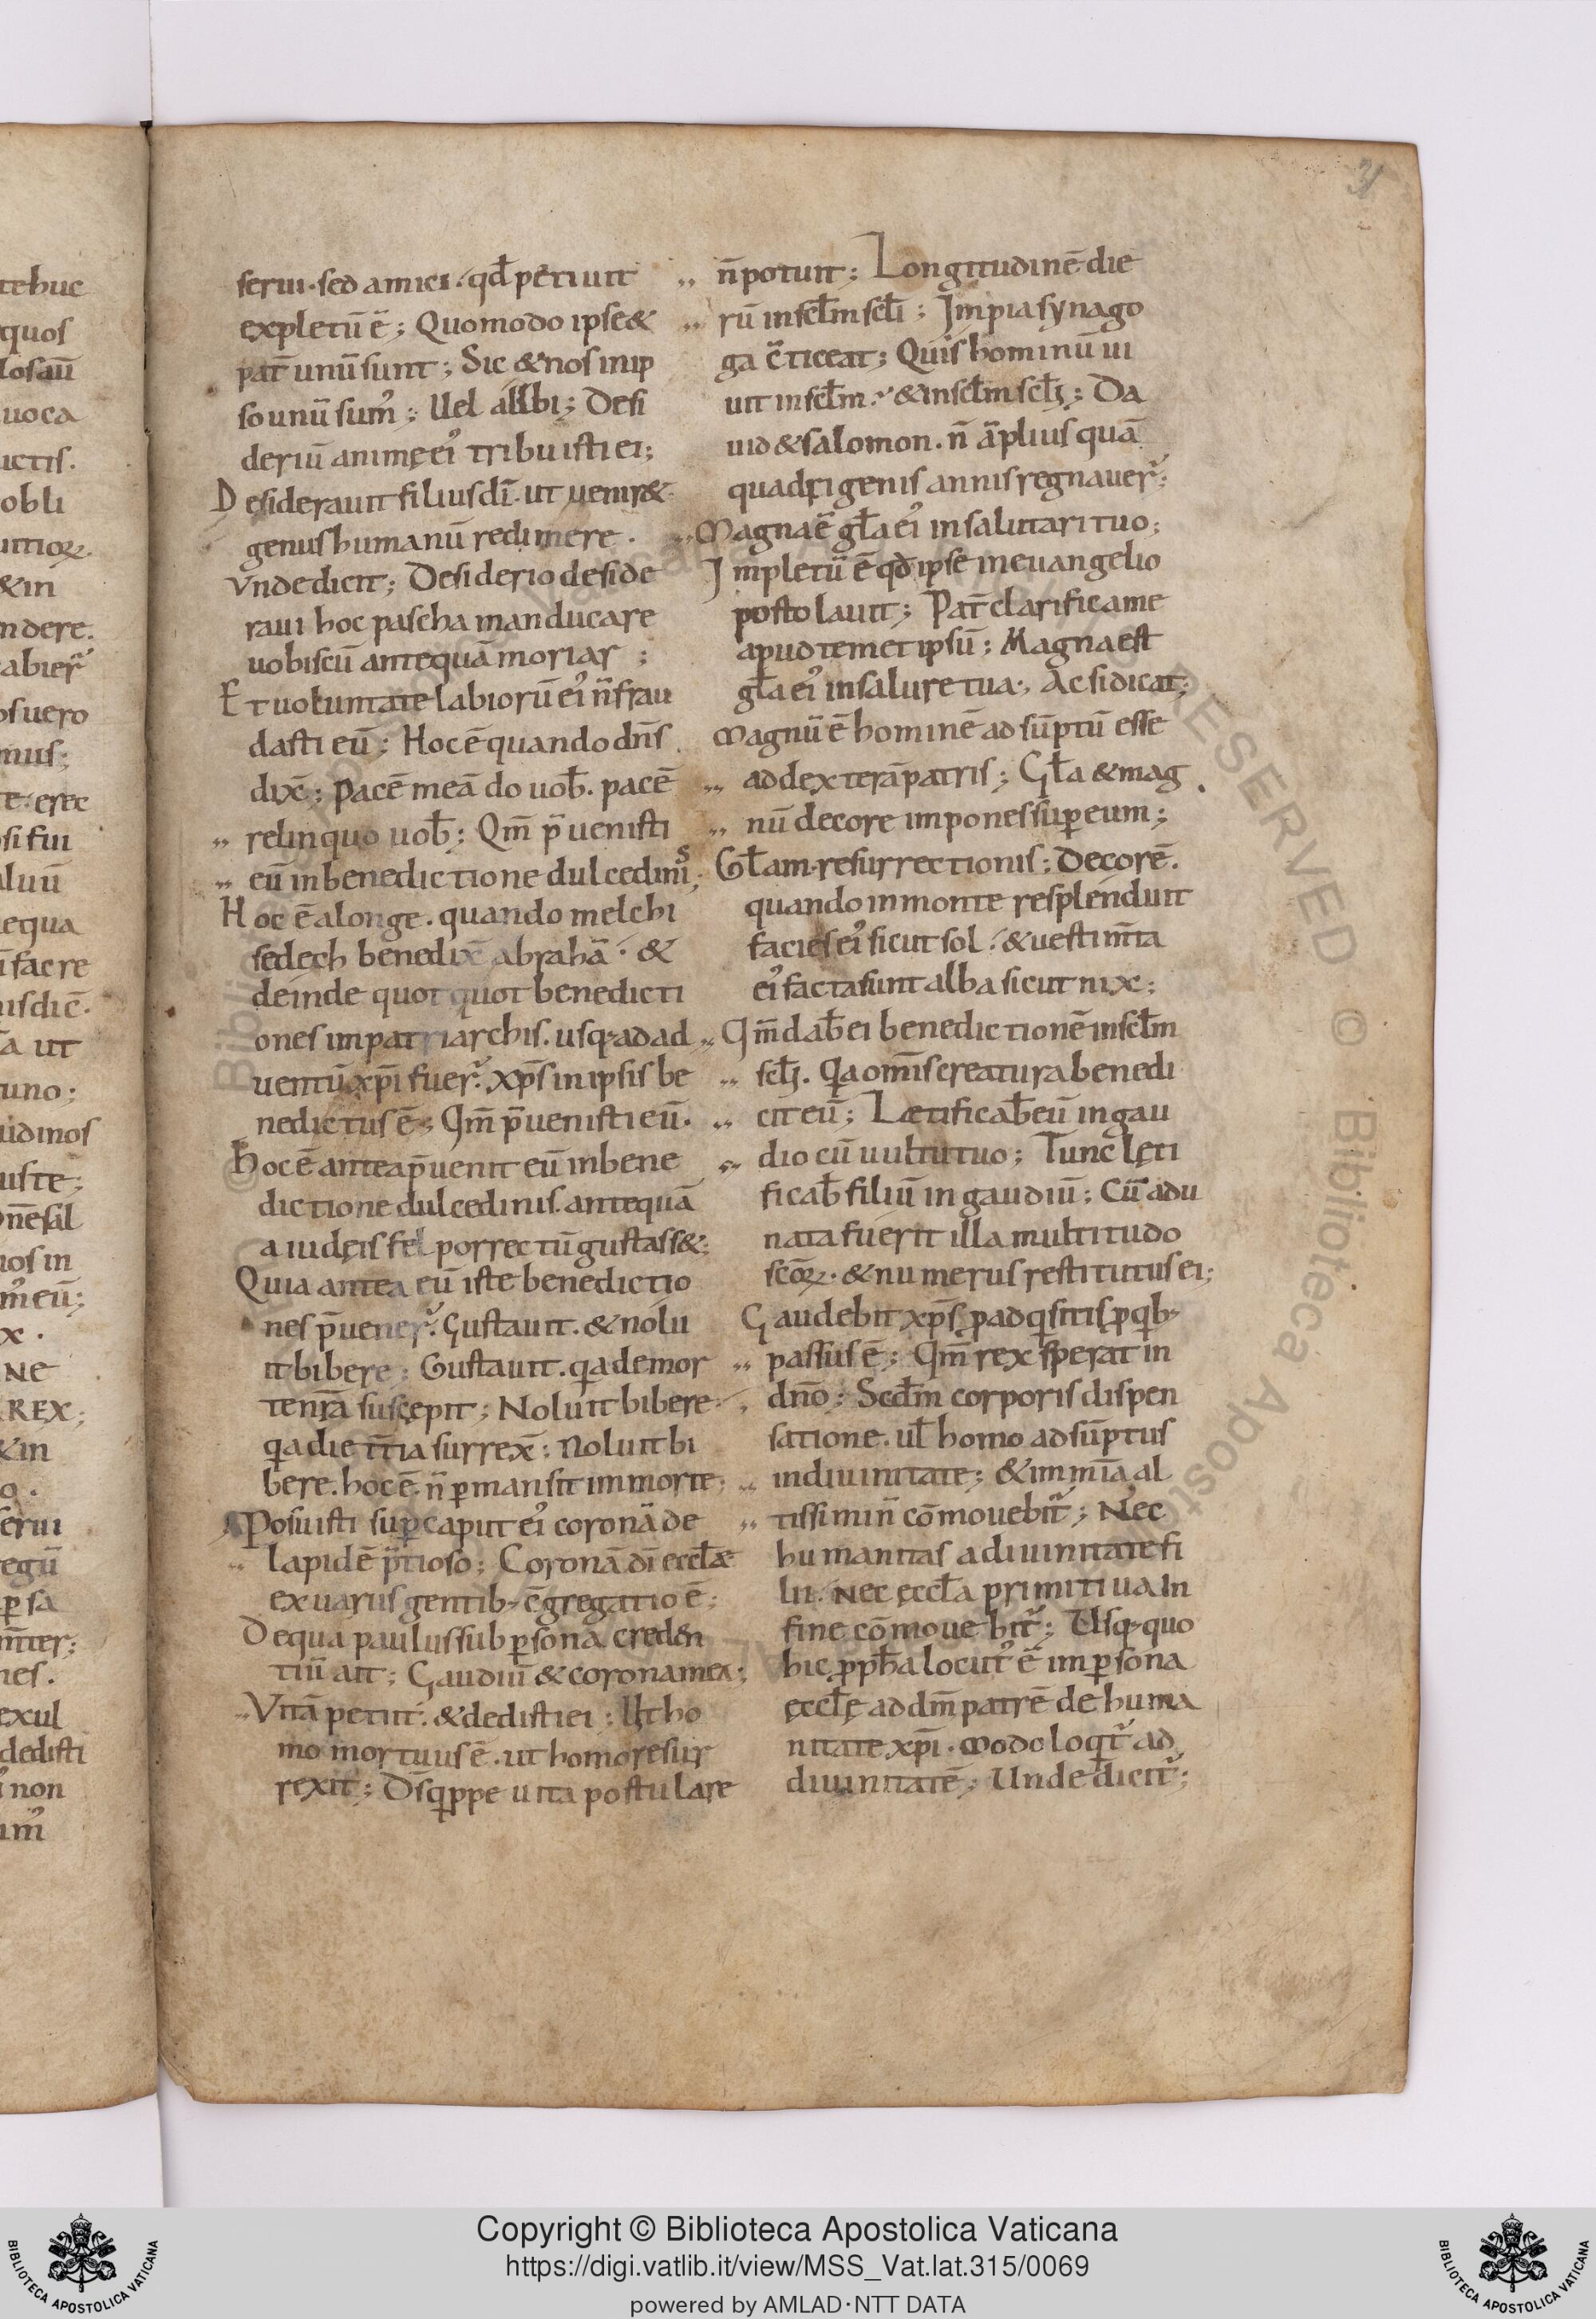 31
serui · sed amici · qđ periuit
expletū ē ; Quomodo ipse &
pat̄ unū sunt ; Sic & nos in ip
so unū sum᾿ ; Uel alibi ; Desi
deriū animę ei᾿ tribuisti ei ;
Desiderauit filius dī · ut uenir&
genus humanū redimere .
Vnde dicit ; Desiderio deside
raui hoc pascha manducare
uobiscū antequā moriar ;
Et uoluntate labiorū ei᾿ n̄ frau
dasti eū ; Hoc ē quando dn̄s
dix̄ ; Pacē meā do uob̄ . pacē
relinquo uob̄ ; Qm̄ p̄uenisti
eū in benedictione dulcedinis ;
Hoc ē a longe . quando melchi
sedech benedix̄ abrahā · &
deinde quotquot benedicti
ones in patriarchis . usq; ad ad
uentū xp̄i fuer᷒ . xp̄s in ipsis be
nedictus ē ; Qm̄ p̄uenisti eū .
Hoc ē antea p̄uenit eū in bene
dictione dulcedinis . antequā
a iudęis fel porrectū gustass& ;
Quia antea eū iste benedictio
nes p̄uener᷒ . Gustauit . & nolu
it bibere ; Gustauit . qa de mor
te nr̄ā suscepit ; Noluit bibere
qa die t̄tia surrex̄ ; Noluit bi
bere . hoc ē n̄ ꝑmansit in morte ;
Posuisti suꝑ caput ei᾿ coronā de
lapidē p̄tioso ; Coronā dī eccłæ
ex uariis gentib; c̄gregatio ē ;
De qua paulus sub ꝑsona creden
tiū ait ; Gaudiū & corona mea ;
Vitā petiit . & dedisti ei ; Ut ho
mo mortuus ē . ut homo resur
rexit ; Ds̄ qippe uita postulare
n̄ potuit ; Longitudinē die
rū in scł̄m scł̄i ; Impia synago
ga c̄ticeat ; Quis hominū ui
uit in scł̄m · & in scł̄m scł̄i ; Da
uid & salomon . n̄ āplius quā
quadrigenis annis regnauer᷒ ;
Magna ē gła ei᾿ in salutari tuo ;
Impletū ē qđ ipse in euangelio
postolauit ; Pat̄ clarifica me
apud temet ipsū ; Magna est
gła ei᾿ in salure tua ; Ac si dicat ;
Magnū ē hominē adsūptū esse
ad dexterā patris ; Gła & mag
nū decore impones suꝑ eum ;
Głam · resurrectionis ; Decorē .
quando in monte resplenduit
facies ei᾿ sicut sol · & uestim̄ta
ei᾿ facta sunt alba sicut nix ;
Qm̄ dab̄ ei benedictionē in scł̄m
scł̄i . Qa omīs creatura benedi
cit eū ; Lætificab̄ eū in gau
dio cū uultu tuo ; Tunc lęti
ficab̄ filiū in gaudiū ; Cū adu
nata fuerit illa multitudo
scōꝝ · & numerus restitutus ei ;
Gaudebit xp̄s ꝓ adqisitis ꝓ qib;
passus ē ; Qm̄ rex sperat in
dn̄o ; Scđm corporis dispen
satione . uł homo adsūptus
in diuinitate ; & in mīa al
tissimi n̄ cōmouebit᷒ ; Nec
humanitas a diuinitate fi
lii · nec ęccła primitiua in
fine cōmouebit᷒ ; Usq; quo
hic ꝓpħa locut᾿ ē in ꝑsona
ęccłę ad dm̄ patrē de huma
nitate xp̄i · modo loqit᷒ ad
diuinitatē ; Unde dicit᷒ ;
Copyright © Biblioteca Apostolica Vaticana
https://digi.vatlib.it/view/MSS_Vat.lat.315/0069
powered by AMLAD·NTT DATA
BIBLIOTECA APOSTOLICA VATICANA
BIBLIOTECA APOSTOLICA VATICANA